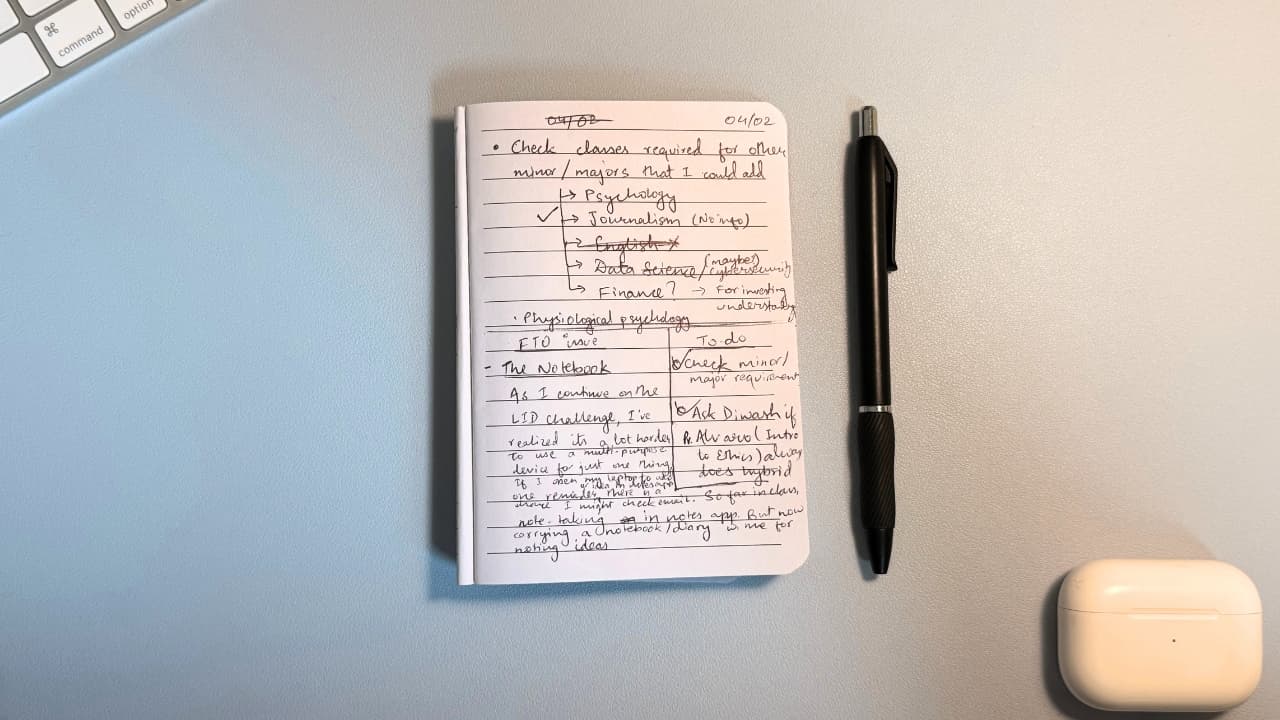 ⌘
command
option
04/02
04/02
• Check classes required for other
minor/majors that I could add
→ Psychology
✓ → Journalism (No info)
→ English ×
→ Data Science/cybersecurity
(maybe?)
→ Finance? → For investing
understanding
· Physiological psychology
issue
- The Notebook
As I continue on the
LID challenge, I've
realized its a lot harder
to use a multi-purpose
device for just one thing.
If I open my laptop to
idea in notes app
one reminder, there is a
chance I might check email. So far in class,
note-taking in notes app. But now
carrying a notebook/diary w me for
noting ideas
To-do
✓ Check minor/
major requirement
✓ Ask Diwash if
Pr. Alvaro (Intro
to Ethics) always
does hybrid